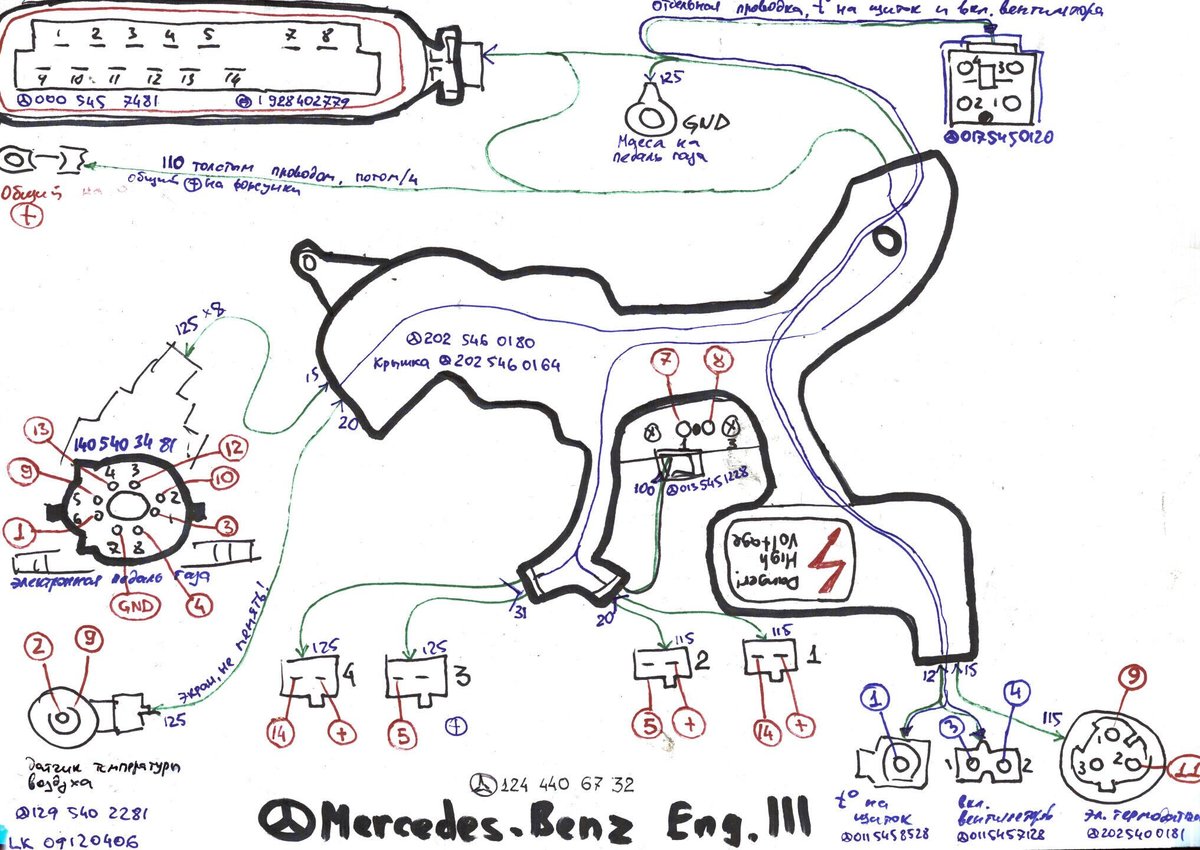 отдельная проводка, t° на щиток и вкл. вентилятора
1 2 3 4 5 7 8
9 10 11 12 13 14
000 545 7481
1928402779
125
GND
Масса на
педаль газа
4 3
2 1
0175450120
110 толстым проводом, потом/ч
общий + на форсунки
Общий на
+
125 x 8
202 546 0180
Крышка 202 546 0164
15
20
7 8
1 3
100
0135451228
140 540 34 81
13
12
9
10
1
3
4 3
5 2
6 1
7 8
GND
4
электронная педаль газа
Danger!
High
Voltage
31
20
экран, не менять!
2 9
125
датчик температуры
воздуха
129 540 2281
LK 09120406
125 4
14 +
125 3
5 +
115 2
5 +
115 1
14 +
12 15
1
3 4
1 2
115
9
1
3 2
11
t° на
щиток
0115458528
вкл.
вентиляторов
0115457128
эл. термодатчик
2025400181
124 440 67 32
Mercedes-Benz Eng. III